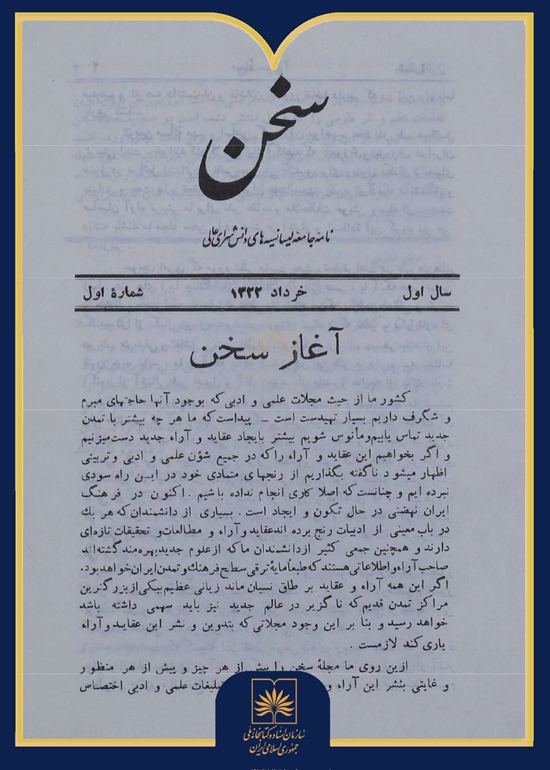 سخن
نامهٔ جامعهٔ لیسانسیه‌های دانش‌سرای عالی
سال اول خرداد ۱۳۲۲ شمارهٔ اول
آغاز سخن
کشور ما از حیث مجلات علمی و ادبی که بوجود آنها حاجتهای مبرم
و شگرف داریم بسیار تهیدست است ـ پیداست که ما هر چه بیشتر با تمدن
جدید تماس یابیم و مأنوس شویم بیشتر بایجاد عقاید و آراء جدید دست میزنیم
و اگر بخواهیم این عقاید و آراء را که در جمیع شؤن علمی و ادبی و تربیتی
اظهار میشود ناگفته بگذاریم از رنجهای متمادی خود در این راه سودی
نبرده ایم و چنانست که اصلا کاری انجام نداده باشیم . اکنون در فرهنگ
ایران نهضتی در حال تکون و ایجاد است . بسیاری از دانشمندان که هر یک
در باب معینی از ادبیات رنج برده اند عقاید و آراء و مطالعات و تحقیقات تازه‌ای
دارند و همچنین جمعی کثیر از دانشمندان ما که از علوم جدید بهره‌مند گشته‌اند
صاحب آراء و اطلاعاتی هستند که طبعاً مایهٔ ترقی سطح فرهنگ و تمدن ایران خواهد بود.
اگر این همه آراء و عقاید بر طاق نسیان ماند زیانی عظیم بیکی از بزرگترین
مراکز تمدن قدیم که ناگزیر در عالم جدید نیز باید سهمی داشته باشد
خواهد رسید و بنا بر این وجود مجلاتی که بتدوین و نشر این عقاید و آراء
یاری کند لازمست .
ازین روی ما مجلهٔ سخن را بیش از هر چیز و پیش از هر منظور
و غایتی بنشر این آراء و تبلیغات علمی و ادبی اختصاص
سازمان اسناد و کتابخانه ملی
جمهوری اسلامی ایران